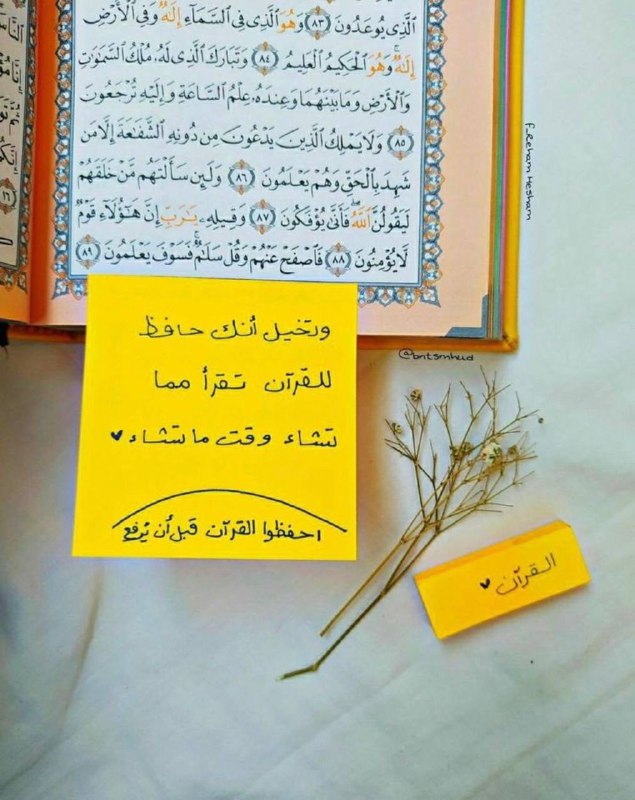 الَّذِي يُوعَدُونَ ﴿٨٣﴾ وَهُوَ الَّذِي فِي السَّمَاءِ إِلَٰهٌ وَفِي الْأَرْضِ
إِلَٰهٌ وَهُوَ الْحَكِيمُ الْعَلِيمُ ﴿٨٤﴾ وَتَبَارَكَ الَّذِي لَهُ مُلْكُ السَّمَٰوَٰتِ
وَالْأَرْضِ وَمَا بَيْنَهُمَا وَعِندَهُ عِلْمُ السَّاعَةِ وَإِلَيْهِ تُرْجَعُونَ
﴿٨٥﴾ وَلَا يَمْلِكُ الَّذِينَ يَدْعُونَ مِن دُونِهِ الشَّفَٰعَةَ إِلَّا مَن
شَهِدَ بِالْحَقِّ وَهُمْ يَعْلَمُونَ ﴿٨٦﴾ وَلَئِن سَأَلْتَهُم مَّنْ خَلَقَهُمْ
لَيَقُولُنَّ اللَّهُ فَأَنَّىٰ يُؤْفَكُونَ ﴿٨٧﴾ وَقِيلِهِ يَٰرَبِّ إِنَّ هَٰؤُلَاءِ قَوْمٌ
لَّا يُؤْمِنُونَ ﴿٨٨﴾ فَاصْفَحْ عَنْهُمْ وَقُلْ سَلَٰمٌ فَسَوْفَ يَعْلَمُونَ ﴿٨٩﴾
f_Reham Hesham
@bntsmhud
وتخيل أنك حافظ
للقرآن تقرأ مما
تشاء وقت ما تشاء ♥
احفظوا القرآن قبل أن يُرفع
القرآن ♥